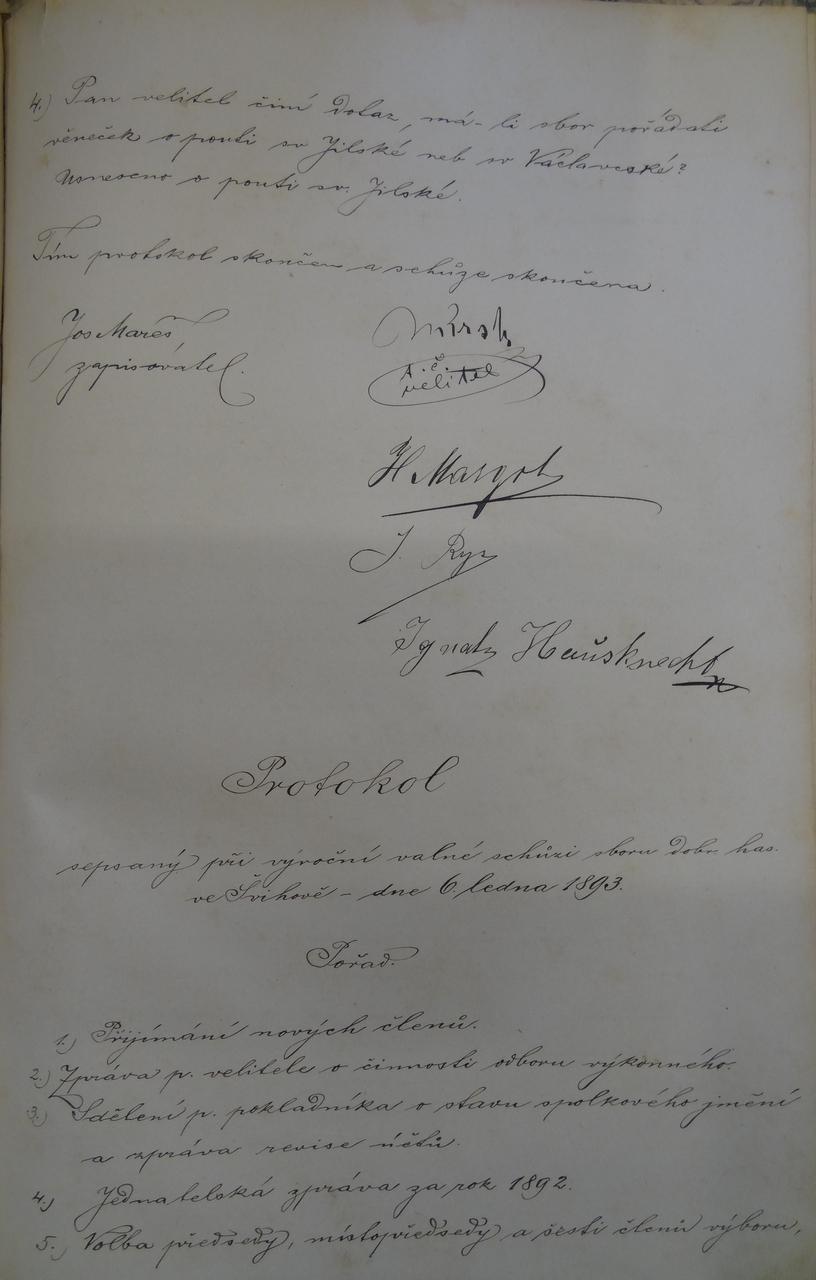 4.) Pan velitel činí dotaz, má-li sbor pořádati
věneček o pouti sv Jilské neb sv Václavcské?
Usneseno o pouti sv. Jilské.
Tím protokol skončen a schůze skončena.
Jos Mareš,
zapisovatel.
t. č.
velitel
H Margol
J. Ryz
Ignatz Haušknecht
Protokol
sepsaný při výroční valné schůzi sboru dobr. has.
ve Švihově – dne 6. ledna 1893.
Pořad.
1.) Přijímání nových členů.
2.) Zpráva p. velitele o činnosti odboru výkonného.
3.) Sdělení p. pokladníka o stavu spolkového jmění
a zpráva revise účtů.
4.) Jednatelská zpráva za rok 1892.
5.) Volba předsedy, místopředsedy a šesti členů výboru,